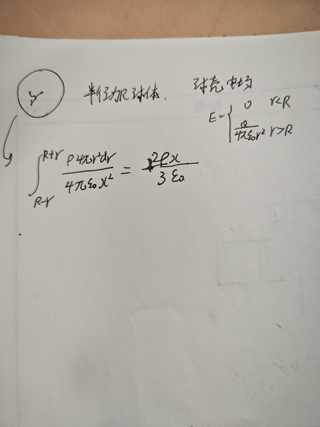 半径为R球体. 球壳电场
E={0 r<R
Q/4πε₀r² r>R
∫_{R-r}^{R+r} ρ4πr²dr/4πε₀x² = 2ρx/3ε₀